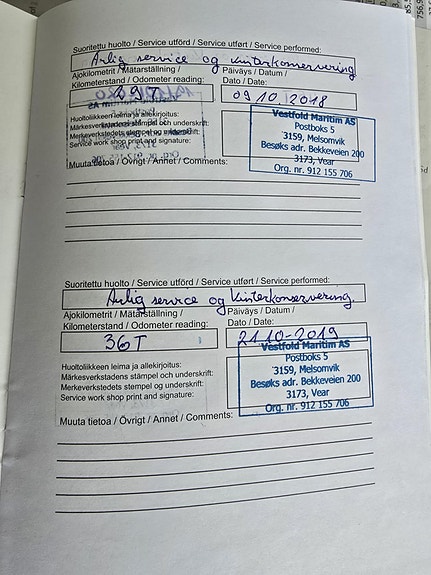 Suoritettu huolto / Service utförd / Service utført / Service performed:
Årlig service og vinterkonservering
Ajokilometrit / Mätarställning / Päiväys / Datum /
Kilometerstand / Odometer reading: Dato / Date:
29T 09 10 2018
Huoltoliikkeen leima ja allekirjoitus:
Märkesverkstadens stämpel och underskrift:
Merkeverkstedets stempel og underskrift:
Service work shop print and signature:
Vestfold Maritim AS
Postboks 5
3159, Melsomvik
Besøks adr. Bekkeveien 200
3173, Vear
Org. nr. 912 155 706
Muuta tietoa / Övrigt / Annet / Comments:
Suoritettu huolto / Service utförd / Service utført / Service performed:
Årlig service og Vinterkonservering.
Ajokilometrit / Mätarställning / Päiväys / Datum /
Kilometerstand / Odometer reading: Dato / Date:
36T 21.10-2019
Huoltoliikkeen leima ja allekirjoitus:
Märkesverkstadens stämpel och underskrift:
Merkeverkstedets stempel og underskrift:
Service work shop print and signature:
Vestfold Maritim AS
Postboks 5
3159, Melsomvik
Besøks adr. Bekkeveien 200
3173, Vear
Org. nr. 912 155 706
Muuta tietoa / Övrigt / Annet / Comments: